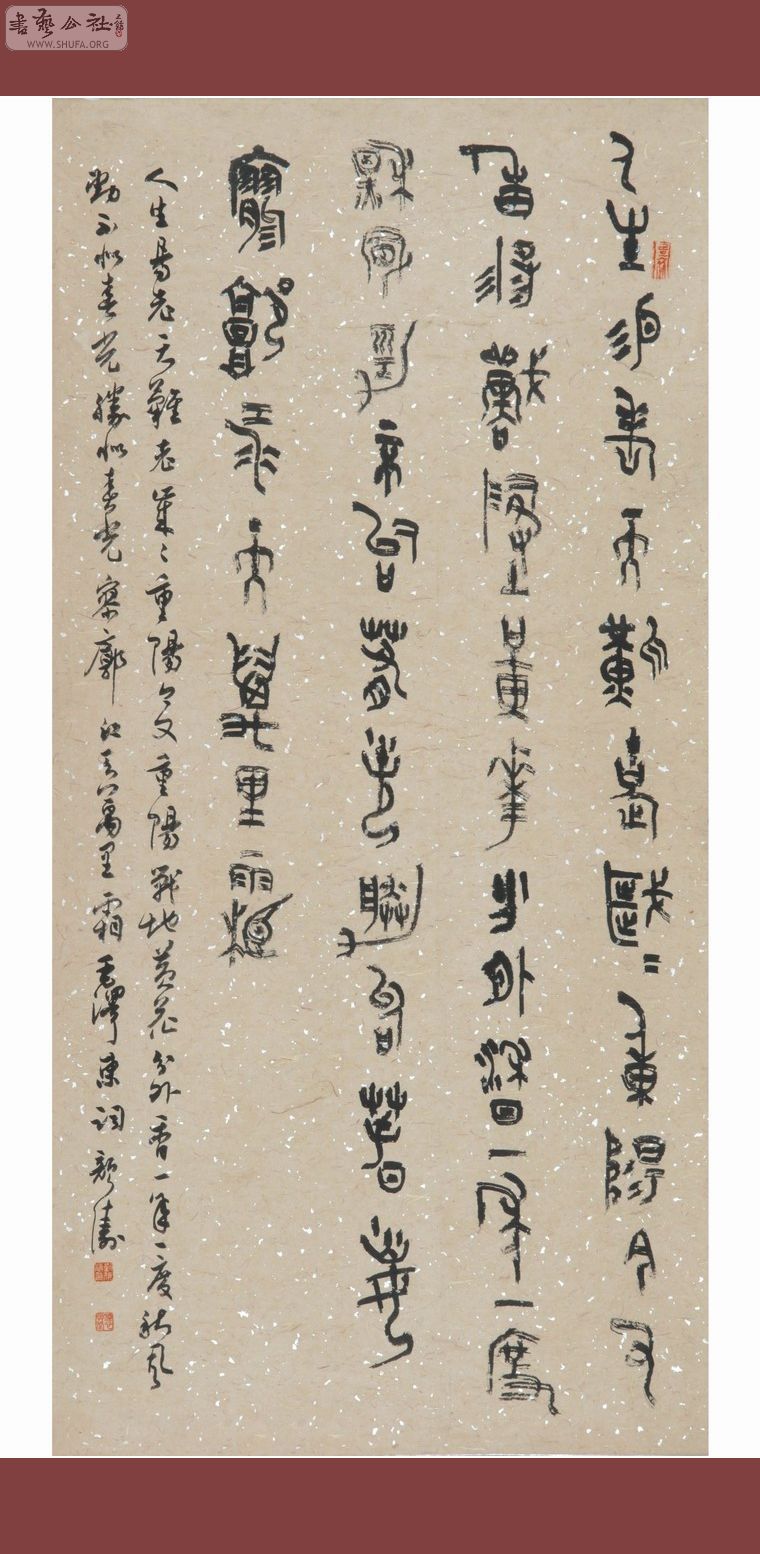 書藝公社
WWW.SHUFA.ORG
人生易老天難老歲〻重陽今又
重陽戰地黃花分外香一年一度
秋風勁不似春光勝似春光
寥廓江天萬里霜
人生易老天難老歲〻重陽今又重陽戰地黃花分外香一年一度秋風
勁不似春光勝似春光寥廓江天萬里霜毛澤東詞顏濤